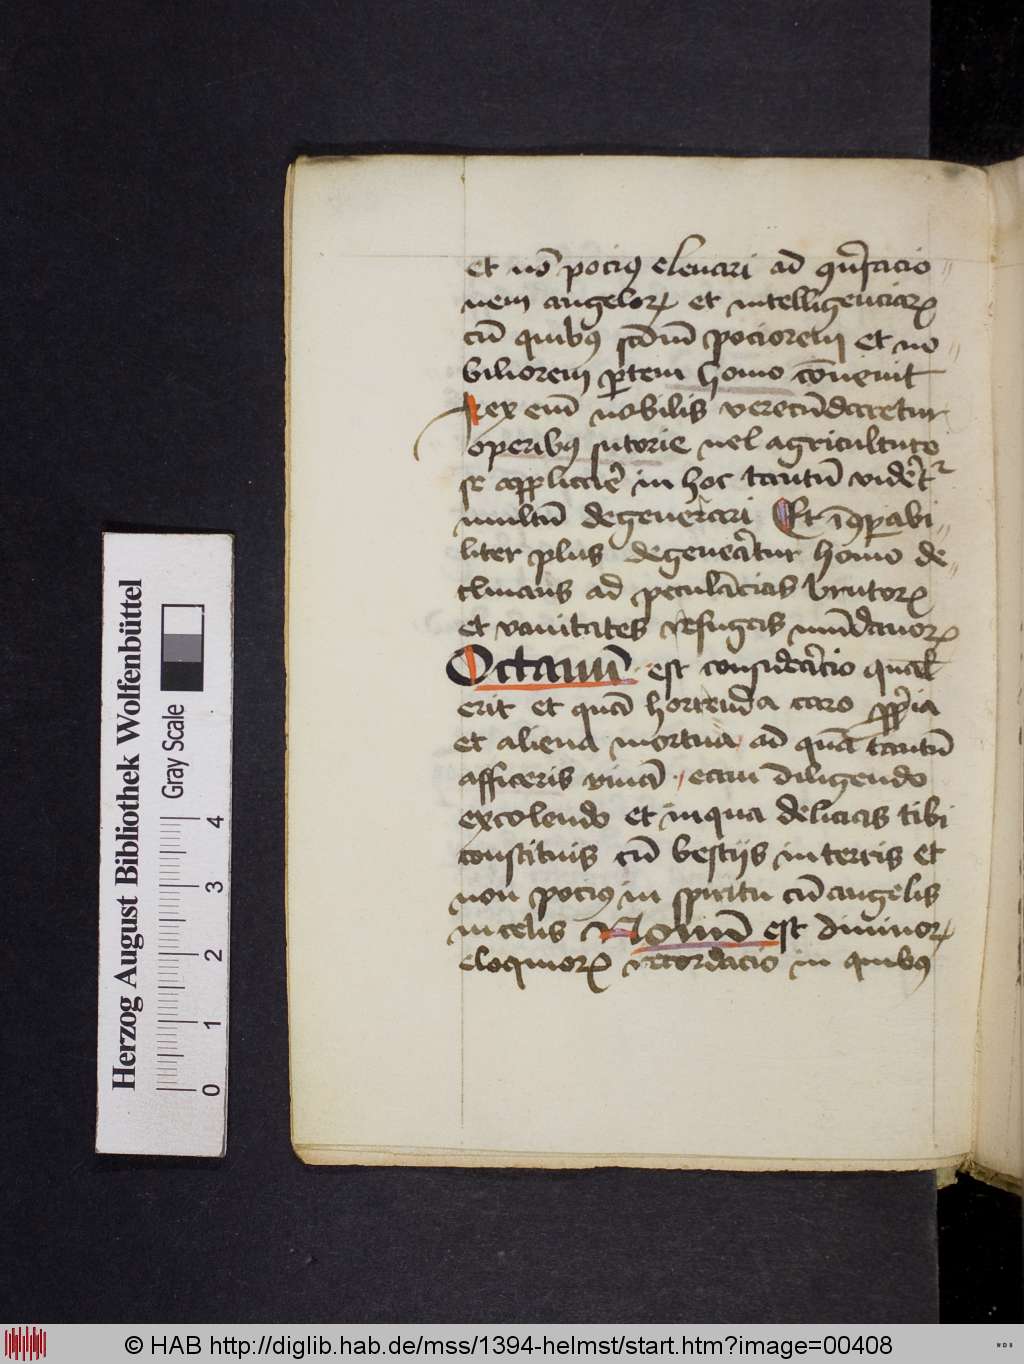 et nō pociꝰ eleuari ad ꝯuersacio〃
nem angeloꝝ et intelligenciaꝝ
cū quibꝰ scdm̄ pociorem et no〃
biliorem ꝑtem homo cōuenit
Rex eni̅ nobilis verecūdaretur
operibꝰ sutorie vel agriculture
se applicare in hoc tantū videret᷑
multū degenerari Et īꝯꝑabi〃
liter plus degeneratur homo de〃
clinans ad brutoꝝ
et vanitates mūdanoꝝ
Octauū est consideracio qualis
erit et quā horrenda caro ꝓpria
et aliena mortua ad quā tantū
afficeris viuā eam diligendo
excolendo et in qua delicias tibi
constituis cū bestijs in terris et
non pociꝰ in spiritu cū angelis
in celis Nonū est diuinoꝝ
eloquioꝝ recordacio in quibꝰ
Herzog August Bibliothek Wolfenbüttel
Gray Scale
0 1 2 3 4
© HAB http://diglib.hab.de/mss/1394-helmst/start.htm?image=00408